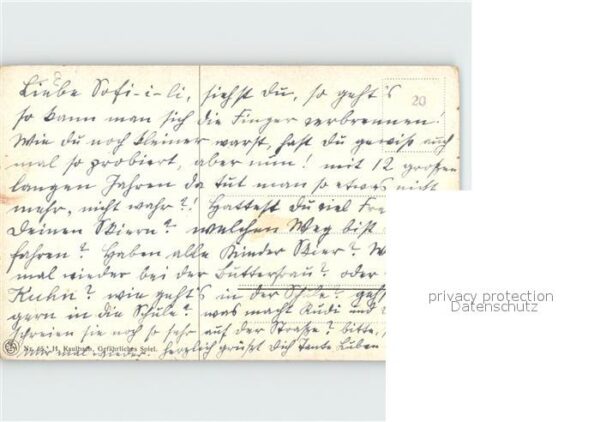 Liebe Sofi-i-li, siehst du, so geht's
20
so kann man sich die Finger verbrennen!
Wie du noch kleiner warst, hast du gewiß auch
mal so probiert, aber nun! mit 12 großen
langen Jahren da tut man so etwas nicht
mehr, nicht wahr?! Hattest du viel Fre
Deinen Skiern? welchen Weg bist
fahren? Haben alle Kinder Skier? W
mal wieder bei der Butterfrau? oder
Kuhn? wie geht's in der Schule? geh
gern in die Schule? was macht Rudi und
schreien sie noch so sehr auf der Straße? bitte,
mal wieder. herzlich grüßt Dich Tante
Nr. H. Kaulbach, Gefährliches Spiel.
privacy protection
Datenschutz